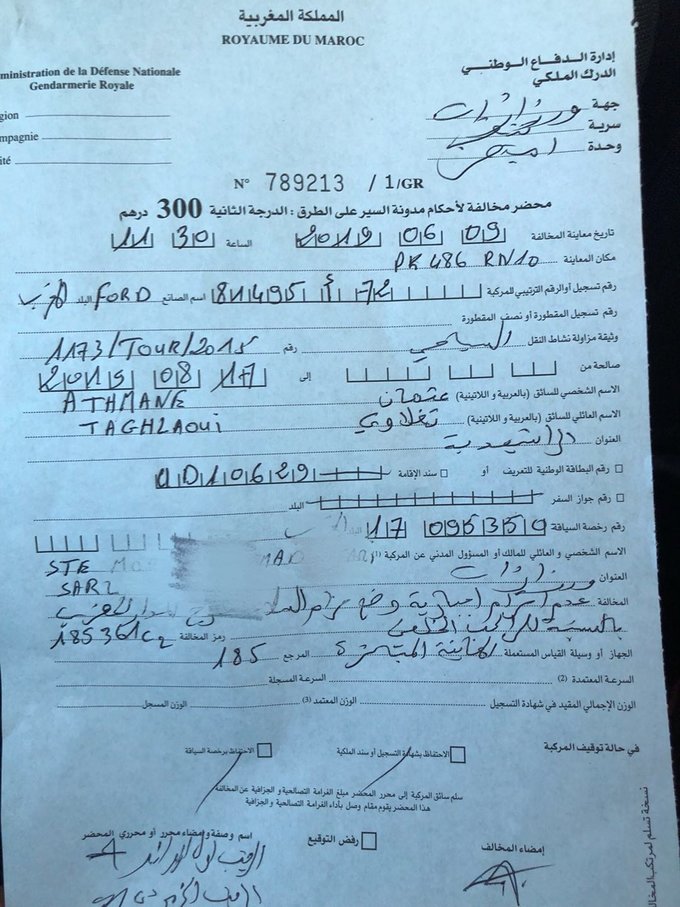 المملكة المغربية
ROYAUME DU MAROC
إدارة الدفاع الوطني
الدرك الملكي
ministration de la Défense Nationale
Gendarmerie Royale
جهة
gion
سرية
mpagnie
وحدة
ité
N° 789213 / 1/GR
محضر مخالفة لأحكام مدونة السير على الطرق : الدرجة الثانية 300 درهم
تاريخ معاينة المخالفة 09 06 2019 الساعة 11 30
مكان المعاينة PK 486 RN10
رقم تسجيل أو الرقم الترتيبي للمركبة 81495 أ 72 اسم الصانع FORD البلد المغرب
رقم تسجيل المقطورة أو نصف المقطورة
وثيقة مزاولة نشاط النقل السياحي رقم 1173/TOUR/2015
صالحة من إلى 17 08 2019
الاسم الشخصي للسائق (بالعربية و اللاتينية) عثمان ATHMANE
الاسم العائلي للسائق (بالعربية و اللاتينية) تغلاوي TAGHLAOUI
العنوان الراشيدية
رقم البطاقة الوطنية للتعريف أو سند الإقامة 10629
رقم جواز السفر البلد
رقم رخصة السياقة 17 095350
الاسم الشخصي و العائلي للمالك أو المسؤول المدني عن المركبة (1) STE
SARL
العنوان ورزازات
المخالفة عدم احترام إجبارية وضع حزام السلامة
بالنسبة للراكب الخلفي رمز المخالفة 185361C2
الجهاز أو وسيلة القياس المستعملة المعاينة المباشرة المرجع 185
السرعة المعتمدة (2) السرعة المسجلة
الوزن الإجمالي المقيد في شهادة التسجيل الوزن المعتمد (3) الوزن المسجل
في حالة توقيف المركبة الاحتفاظ بشهادة التسجيل أو سند الملكية الاحتفاظ برخصة السياقة
سلم سائق المركبة إلى محرر المحضر مبلغ الغرامة التصالحية و الجزافية عن المخالفة
هذا المحضر يقوم مقام وصل بأداء الغرامة التصالحية و الجزافية
إمضاء المخالف رفض التوقيع اسم وصفة وإمضاء محرر أو محرري المحضر
نسخة تسلم لمرتكب المخال